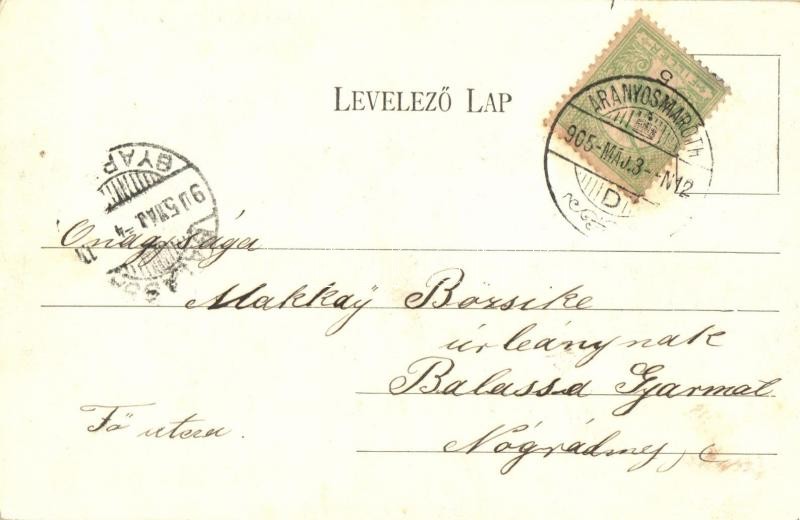 LEVELEZŐ LAP
FILLÉR
ARANYOSMARÓTH
905-MÁJ.3--N12
D
GYAR
905 MÁJ -4
BALASSA
Ő nagysága
Makkay Bözsike
úrleánynak
Balassa Gyarmat
Fő utcza.
Nógrádmeg